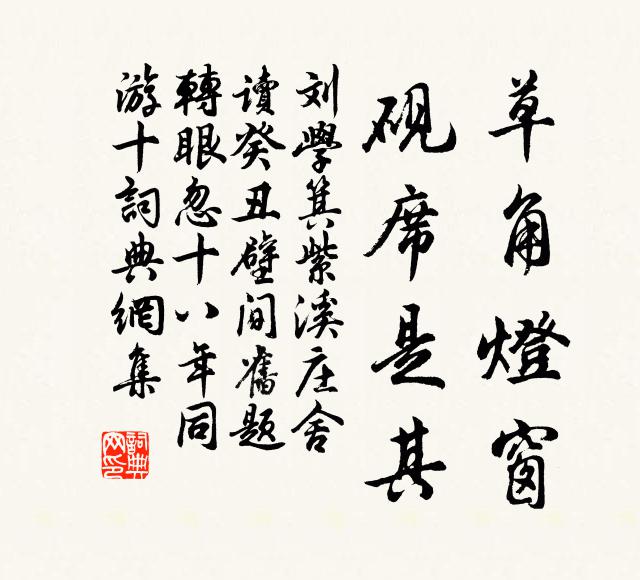 草角燈窗
硯席是其
刘學箕紫溪庄舍
讀癸丑壁间舊题
轉眼忽十八年同
游十詞典網集
詞典网印